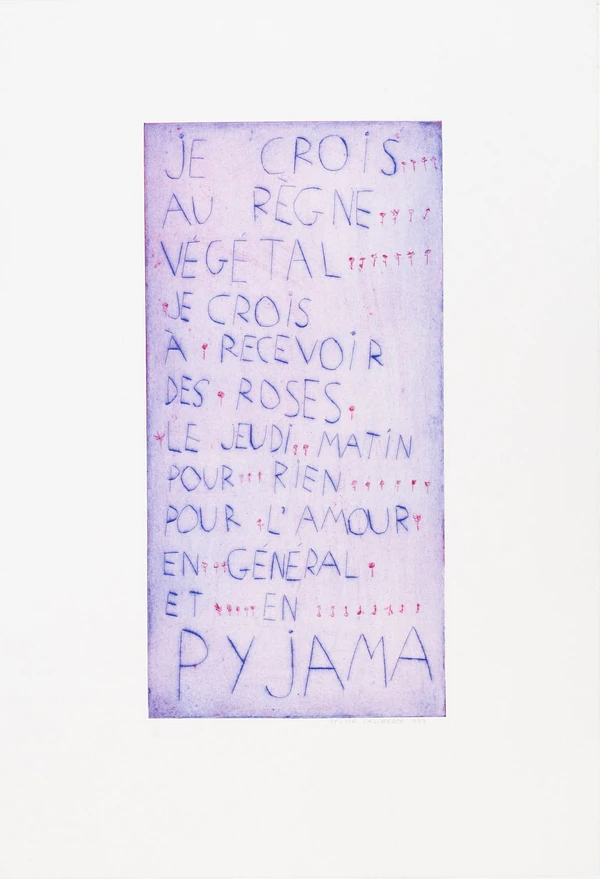 JE CROIS
AU RÈGNE
VÉGÉTAL
JE CROIS
À RECEVOIR
DES ROSES
LE JEUDI MATIN
POUR RIEN
POUR L'AMOUR
EN GÉNÉRAL
ET EN
PYJAMA